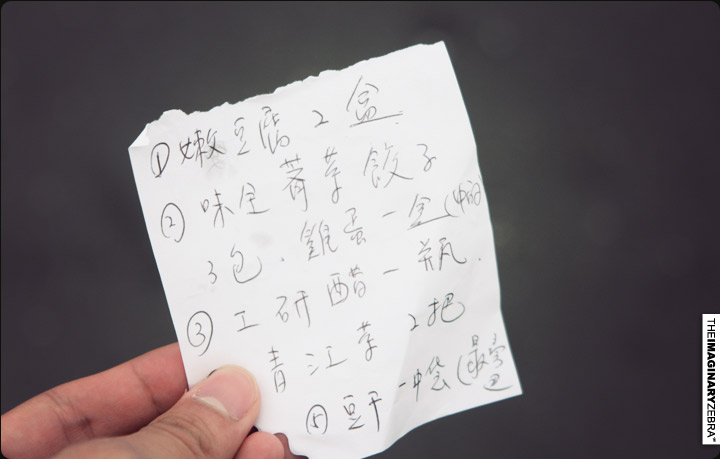 ① 嫩豆腐 2 盒
② 味全 薺菜 餃子
3包. 雞蛋一盒(中的
③ 工研醋一瓶.
青江菜 2把
⑤ 豆干 一中袋(最
THEIMAGINARYZEBRA